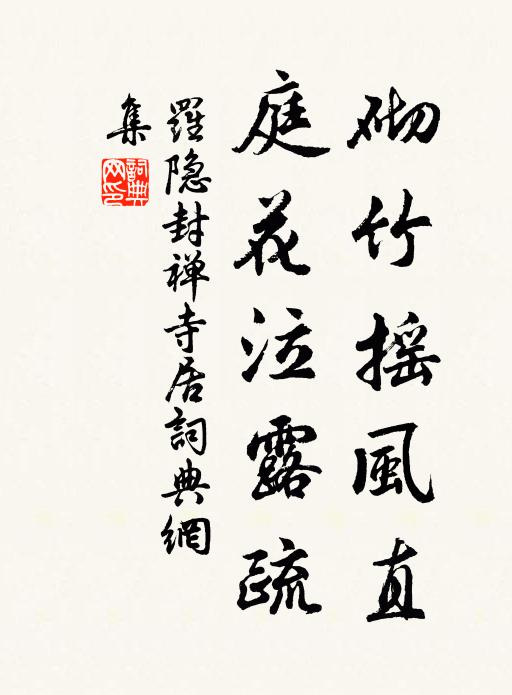 砌竹摇風直
庭花泣露疏
羅隐封禅寺居詞典網
集
詞典
网印